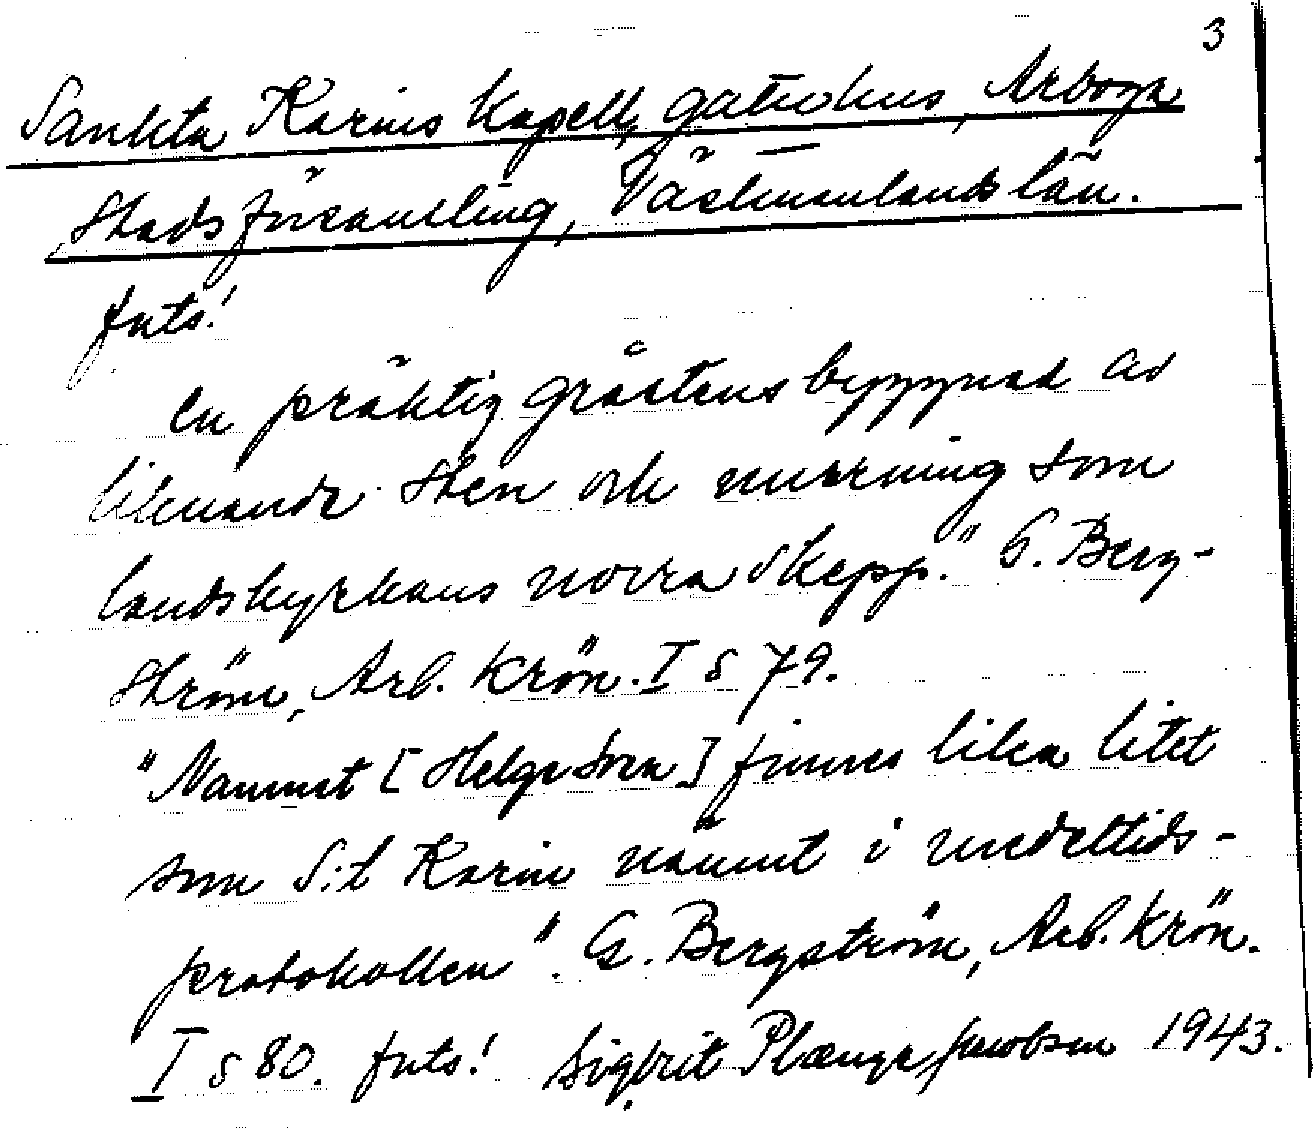 3
Sankta Karins Kapell, gatuhus, Arboga
Stadsförsamling, Västmanlands län.
forts!
En präktig gråstensbyggnad av
liknande sten och murning som
landskyrkans norra skepp." G. Berg-
ström, Arb. Krön. I s 79.
"Namnet [Helge Sven] finnes lika litet
som S:t Karin nämnt i medeltids-
protokollen". G. Bergström, Arb. Krön.
I s 80. forts! Sigbrit Plænge Jacobson 1943.